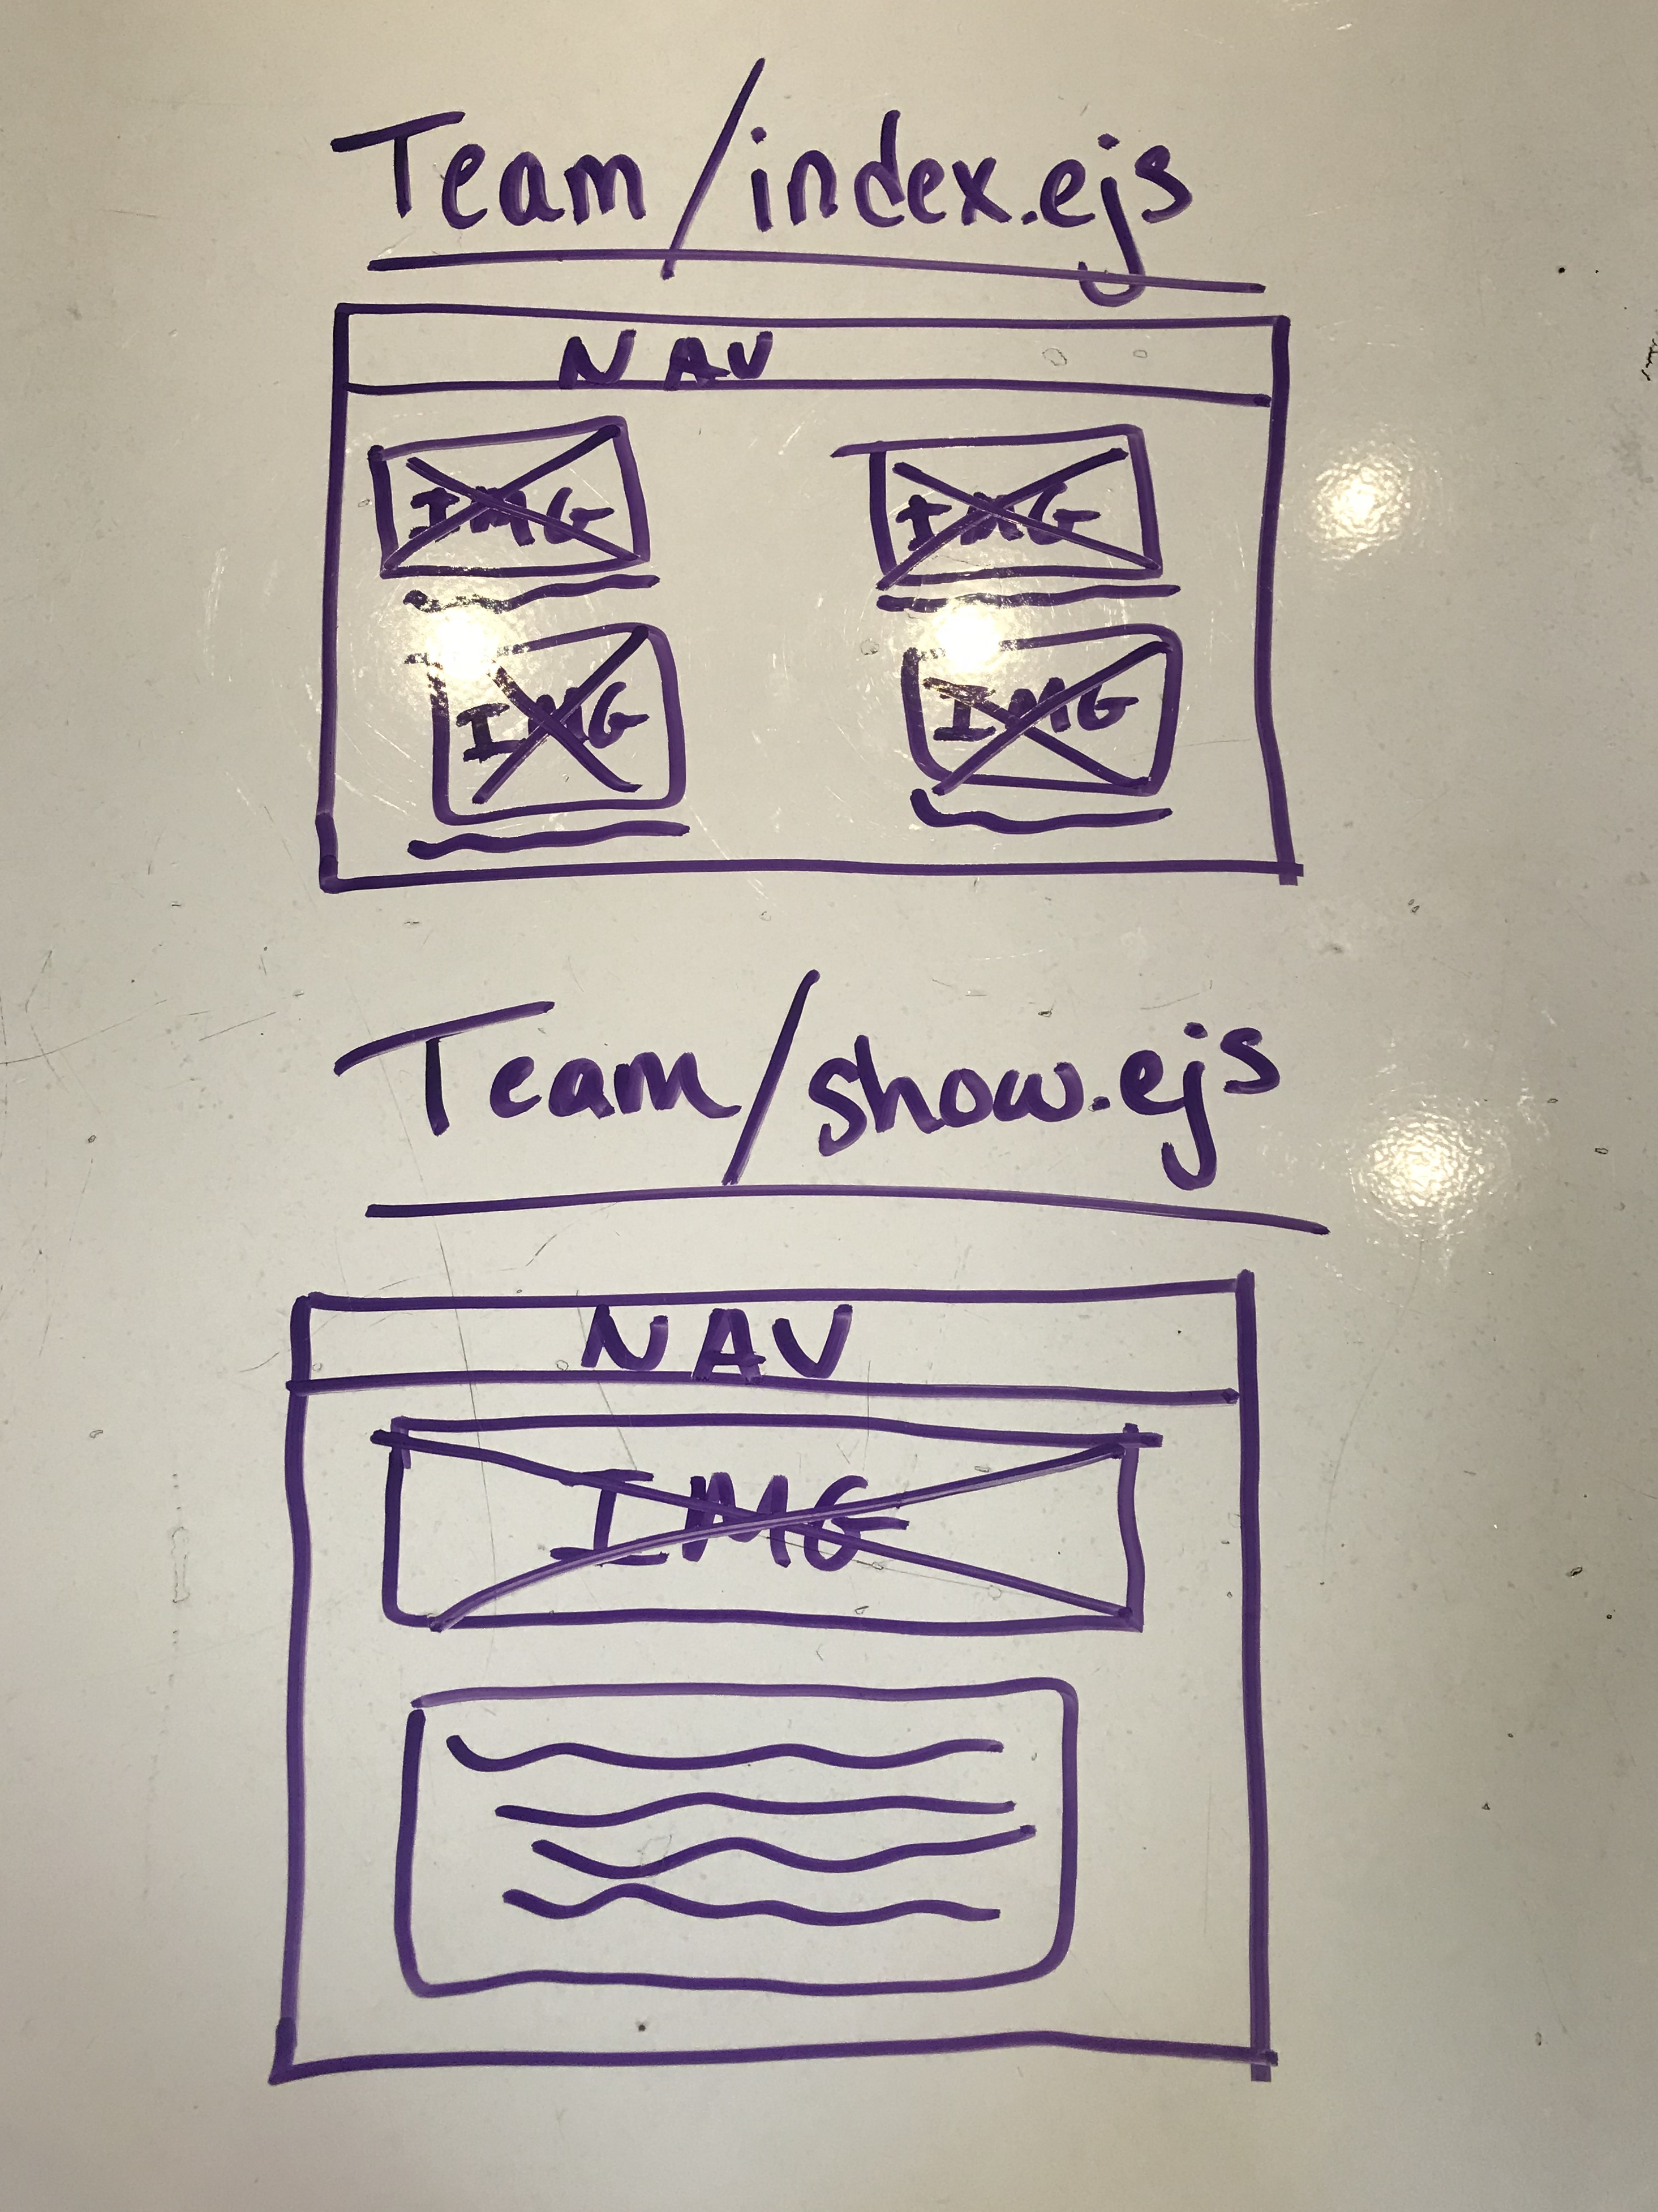 Team/index.ejs
NAV
IMG IMG
IMG IMG
Team/show.ejs
NAV
IMG